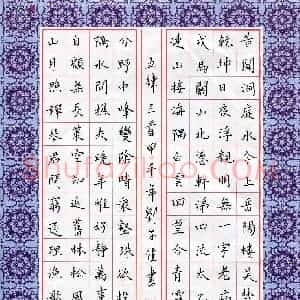 昔聞洞庭水今上岳陽樓吳
乾坤日夜浮親朋無一字老病
戎馬關山北憑軒涕泗流太乙
連山接海隅白雲迴望合青靄
五律三首甲午年劉子佳書
分野中峰變陰晴衆壑殊欲投
隔水問樵夫晚年惟好靜萬
自顧無長策空知返舊林松風
山月照彈琴君問窮通理漁歌